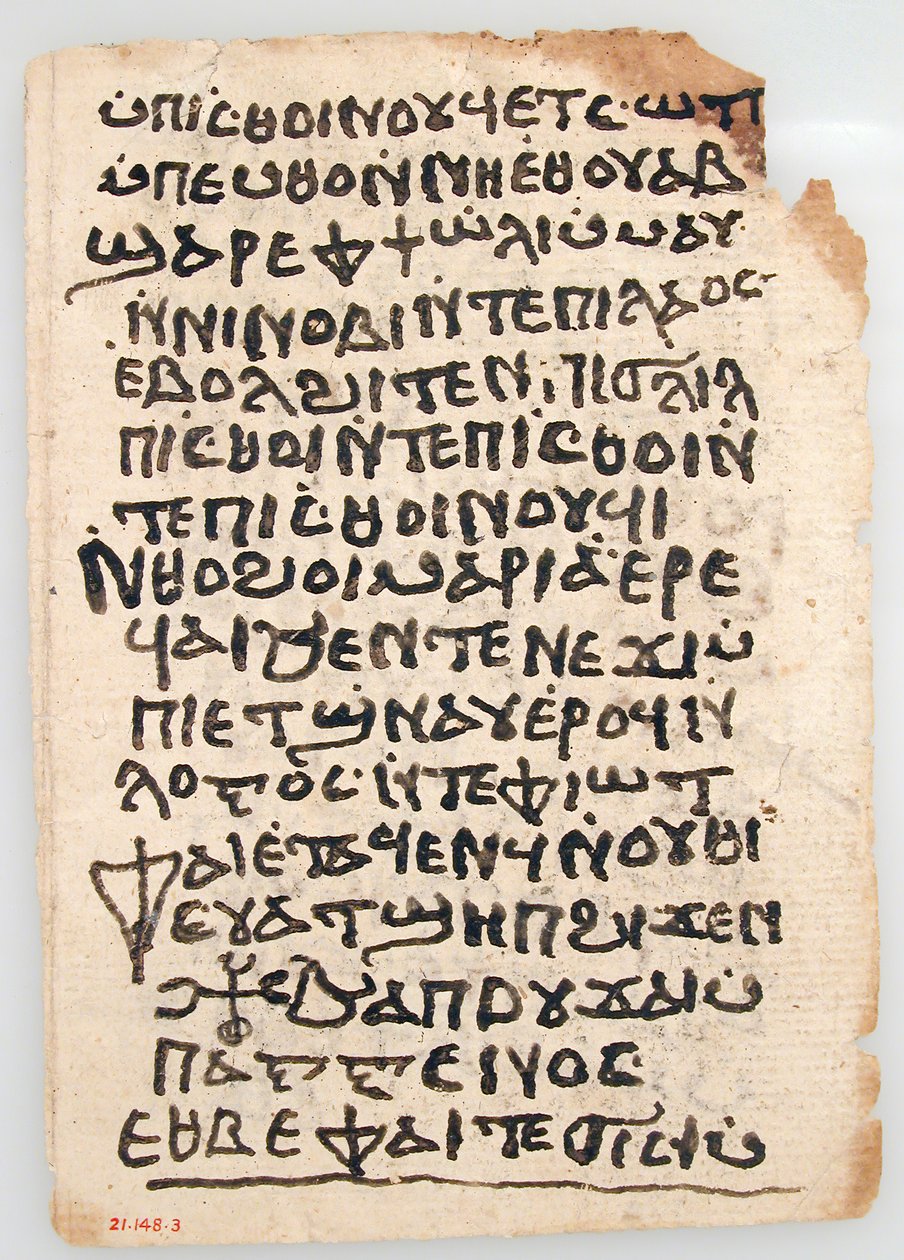 ⲙ̇ⲡⲓⲥⲑⲟⲓⲛⲟⲩϥⲉⲧⲥⲱⲧⲡ
ⲙ̇ⲡⲉⲙⲑⲟⲛ̇ⲛⲏⲉ̇ⲑⲟⲩⲁⲃ
ϣⲁⲣⲉⲫϯⲱ̇ⲗⲓⲙ̇ⲙⲁⲩ
ⲛ̇ⲛⲓⲛⲟⲃⲓⲛ̇ⲧⲉⲡⲓⲗⲁⲟⲥ
ⲉⲃⲟⲗϩⲓⲧⲉⲛⲡⲓⲥ̇ⲑⲟⲓ
ⲡⲓⲥⲑⲟⲓⲛ̇ⲧⲉⲡⲓⲥⲑⲟⲓⲛ̇
ⲧⲉⲡⲓⲥⲑⲟⲓⲛⲟⲩϥⲓ
ⲛ̇ⲑⲟϩⲟⲓⲙⲁⲣⲓⲁ̇ⲉⲣⲉ
ϥⲁⲓϧⲉⲛⲧⲉⲛⲉϫⲓⲙ̇
ⲡⲓⲉⲧϣ̇ⲛⲁⲩⲉ̇ⲣⲟϥⲛ̇
ⲗⲟⲅⲟⲥⲛ̇ⲧⲉⲫⲓⲱⲧ
ⲫⲁⲓⲉ̇ⲧⲁϥⲉⲛϥⲛ̇ⲟⲩⲑⲓ
ⲉⲩⲁⲧϣⲏⲡϩⲓϫⲉⲛ
ⲁⲡⲟⲩϫⲁⲓⲙ̇
ⲡⲁⲅⲅⲉⲛⲟⲥ
ⲉⲑⲃⲉⲫⲁⲓⲧⲉⲛϭⲓⲥⲓⲙ̇
21.148.3